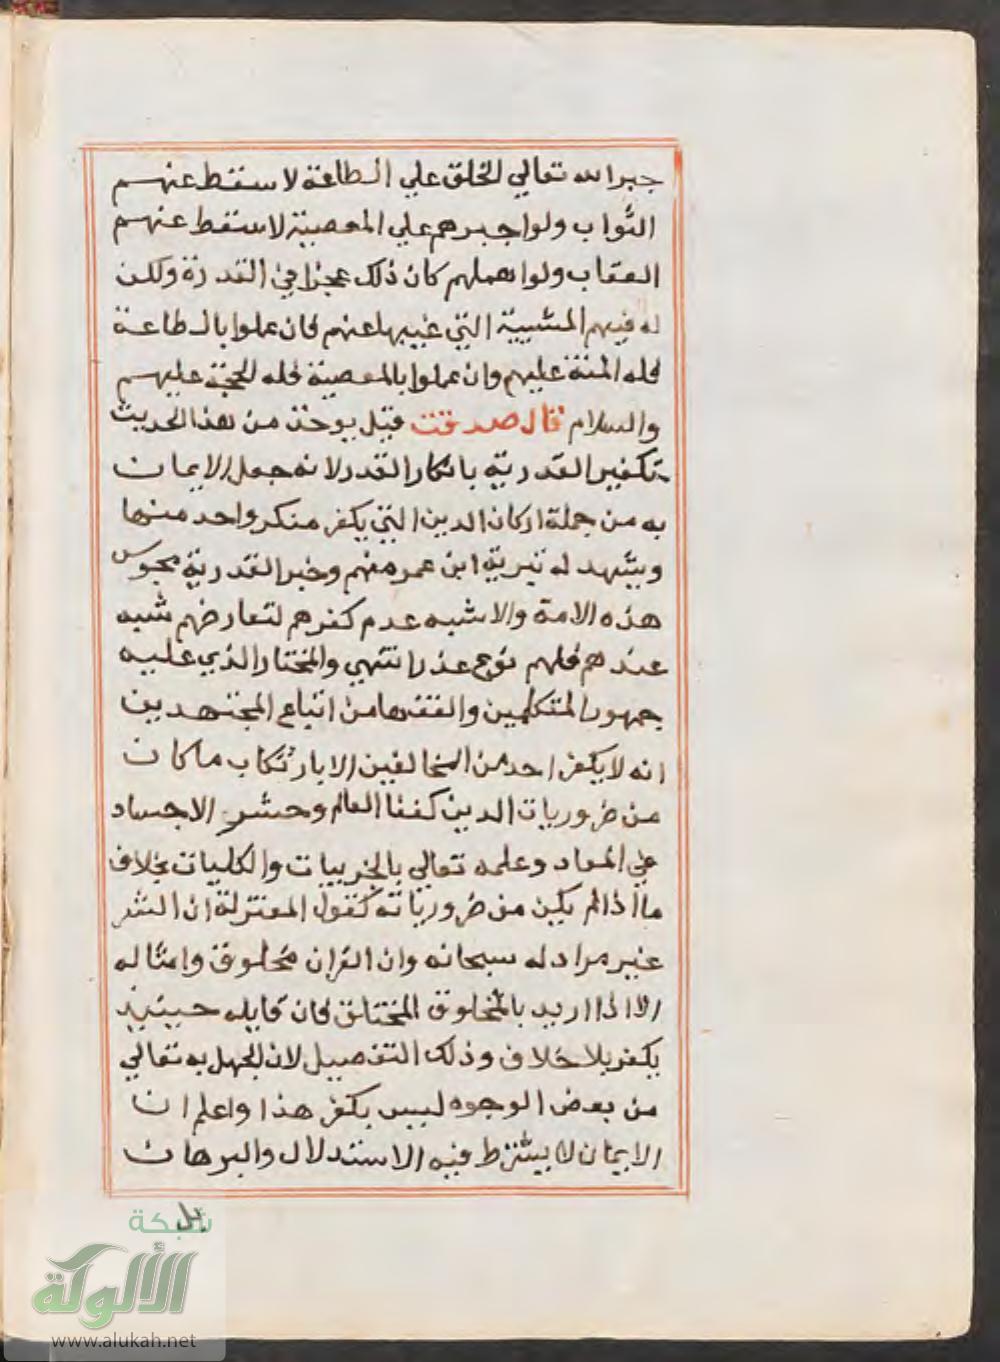 جبر الله تعالي الخلق علي الطاعة لاسقط عنهم
الثواب ولو اجبرهم علي المعصية لاسقط عنهم
العقاب ولو اهملهم كان ذلك عجزا في القدرة ولكن
له فيهم المشيية التي غيبها عنهم فان عملوا بالطاعة
فله المنة عليهم وان عملوا بالمعصية فله الحجة عليهم
والسلام قال صدقت قيل يوخذ من هذا الحديث
تكفير القدرية بانكار القدر لانه جعل الايمان
به من جملة اركان الدين التي يكفر منكر واحد منها
ويشهد له تبرية ابن عمر منهم وخبر القدرية مجوس
هذه الامة والاشبه عدم كفرهم لتعارضهم شبه
عندهم فلهم نوع عذر انتهي والمختار الذي عليه
جمهور المتكلمين والفقها من اتباع المجتهدين
انه لا يكفر احد من المخالفين الا بارتكاب ما كان
من ضروريات الدين كفنا العالم وحشر الاجساد
في المعاد وعلمه تعالي بالجزييات والكليات بخلاف
ما اذا لم يكن من ضرورياته كقول المعتزلة ان الشر
غير مراد له سبحانه وان القران مخلوق وامثاله
الا اذا اريد بالمخلوق المختلق فان قايله حينيذ
يكفر بلا خلاف وذلك التفصيل لان الجهل به تعالي
من بعض الوجوه ليس بكفر هذا واعلم ان
الايمان لا يشترط فيه الاستدلال والبرهان
بل
شبكة
الألوكة
www.alukah.net